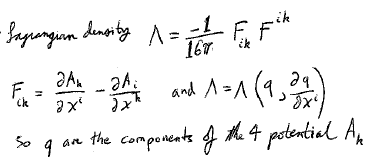 Lagrangian density Λ = -1/16π F_ik F^ik
F_ik = ∂A_k/∂x^i - ∂A_i/∂x^k and Λ = Λ(q, ∂q/∂x^i)
so q are the components of the 4 potential A_k